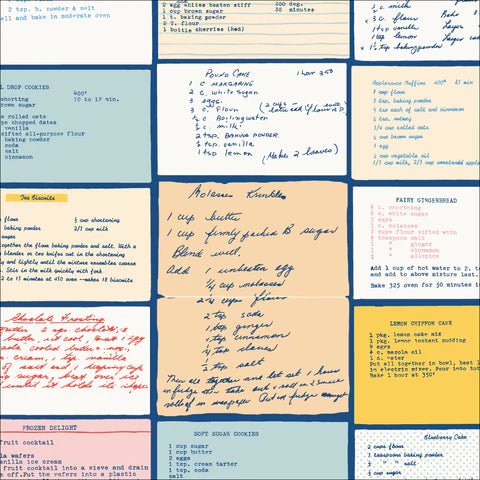 2 t. b. powder & salt
well and bake in moderate oven
2 egg whites beaten stiff
350 deg.
1 cup brown sugar
35 minutes
1 t. baking powder
2 T. flour
1 bottle cherries (Red)
c. milk
3 c. flour
1 tsp vanilla
1 tsp lemon
1 1/2 tsp baking powder
DROP COOKIES
shorting
400°
brown sugar
10 to 12 min.
rolled oats
chopped dates
vanilla
sifted all-purpose flour
baking powder
soda
salt
cinnamon
POUND CAKE
1 hour 350
1 c MARGARINE
2 c. white sugar
3 eggs.
3 c. Flour
1/2 c Boiling water
1/2 c. milk
2 tsp. BAKING POWDER.
1 tsp. vanilla
1 tsp lemon
(Makes 2 loaves)
Applesauce Muffins 400° 25 min
1 cup flour
1 tsp. baking powder
1/2 tsp each of salt and cinnamon
tsp. nutmeg
3/4 cup rolled oats
cup brown sugar
1 egg
1/2 cup vegetable oil
1/3 cup milk, 2/3 cup sweetened apple
Tea Biscuits
flour
1/2 cup shortening
baking powder
2/3 cup milk
sugar
together the flour baking powder and salt. With a
blender or two knives cut in the shortening
and lightly until the mixture resembles coarse
Stir in the milk quickly with fork
to 15 minutes at 450 oven - makes 18 biscuits
Molasses Krinkles
1 cup butter
1 cup firmly packed B sugar
Blend well.
Add 1 unbeaten egg
1/4 cup molasses
2 1/4 cup flour
2 tsp soda
1 tsp ginger
1 tsp cinnamon
1/2 tsp cloves
1/4 tsp salt
FAIRY GINGERBREAD
c. shortening
c. white sugar
eggs
c. molasses
cups flour sifted with
teaspoon salt
" ginger
" cinnamon
" allspice
Add 1 cup of hot water to 2.
and add to above mixture last.
Bake 325 oven for 50 minutes
Chocolate Frosting
powder 2 sqs. chocolate,
butter, let cool, beat 1 egg
cooled butter
cream, 1 tsp. vanilla
of salt and 1
sugar, beat over ice
until it holds its shape
LEMON CHIFFON CAKE
1 pkg. lemon cake mix
1 pkg. lemon instant pudding
4 eggs
c. mazola oil
c. water
Put all together in bowl, beat
in electric mixer. Pour into tub
Bake 1 hour at 350°
FROZEN DELIGHT
fruit cocktail
vanilla ice cream
fruit cocktail into a sieve and drain
off. Put the wafers into a plastic
SOFT SUGAR COOKIES
1 cup sugar
1 cup butter
2 eggs
1 tsp. cream tarter
1 tsp. soda
Blueberry Cake
2 cups flour
teaspoons baking powder
" " salt
cup sugar